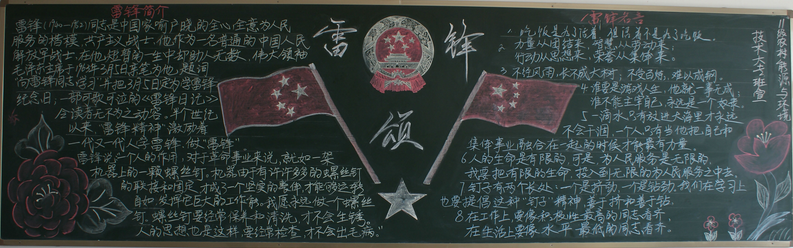 雷锋简介
雷锋(1940-1962)同志是中国家喻户晓的全心全意为人民
服务的楷模,共产主义战士,他作为一名普通的中国人民
解放军战士,在他短暂的一生中却助人无数,伟大领袖
毛泽东主席于1963年3月5日亲笔为他题词
向雷锋同志学习,并把3月5日定为雷锋
纪念日,一部可歌可泣的《雷锋日记》
令读者无不为之动容,半个世纪
以来"雷锋精神"激励着
一代又一代人学雷锋,做"雷锋"
雷锋说:一个人的作用,对于革命事业来说,就如一架
机器上的一颗螺丝钉,机器由于有许许多多的螺丝钉
的联接和固定,才成了一个坚实的整体,才能够运转
自如,发挥它巨大的工作能,我愿永远做一个螺丝
钉,螺丝钉要经常保养和清洗,才不会生锈,
人的思想也是这样,要经常检查,才不会出毛病。
雷
锋
颂
雷锋名言
1.吃饭是为了活着,但活着不是为了吃饭。
2.力量从团结来,智慧从劳动来,
行动从思想来,荣誉从集体来。
3.不经风雨,长不成大树;不受百炼,难以成钢。
4.谁若是游戏人生,他就一事无成,
谁不能主宰自己,永远是一个奴隶。
5.一滴水只有放进大海里才永远
不会干涸,一个人只有当他把自己和
集体事业融合在一起的时候才能最有力量。
6.人的生命是有限的,可是,为人民服务是无限的,
我要把有限的生命,投入到无限的为人民服务之中去
7.钉子有两个长处:一个是挤劲,一个是钻劲,我们在学习上
也要提倡这种"钉子"精神,善于挤和善于钻。
8.在工作上,要像积极性最高的同志看齐,
在生活上,要像水平最低的同志看齐。
技术大专班宣